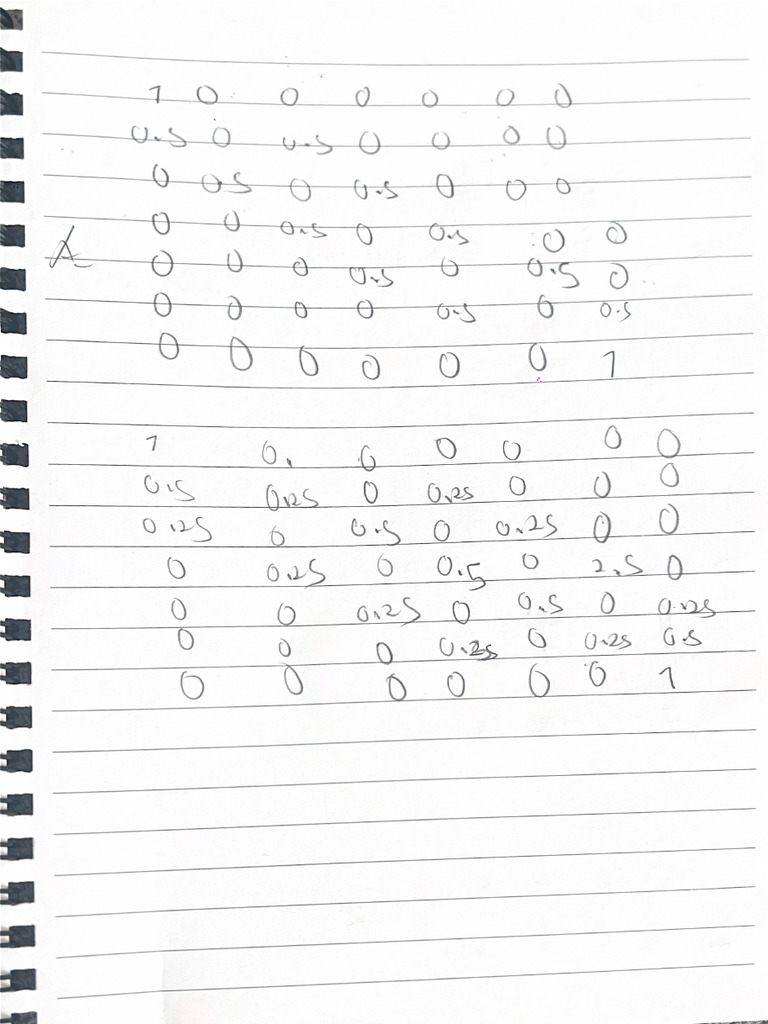 1 0 0 0 0 0 0
0.5 0 0.5 0 0 0 0
0 0.5 0 0.5 0 0 0
0 0 0.5 0 0.5 0 0
0 0 0 0.5 0 0.5 0
0 0 0 0 0.5 0 0.5
0 0 0 0 0 0 1
1 0. 0 0 0 0 0
0.5 0.25 0 0.25 0 0 0
0.25 0 0.5 0 0.25 0 0
0 0.25 0 0.5 0 2.5 0
0 0 0.25 0 0.5 0 0.25
0 0 0 0.25 0 0.25 0.5
0 0 0 0 0 0 1